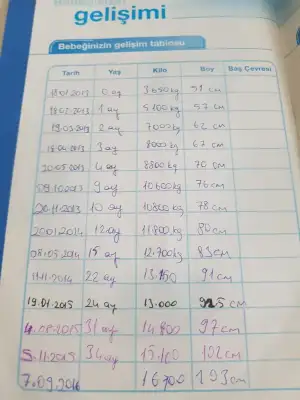 gelişimi
Bebeğinizin gelişim tablosu
Tarih Yaş Kilo Boy Baş Çevresi
0 ay 3650kg 51 cm
18.02.2013 1 ay 5100kg 57 cm
19.03.2013 2 ay 7000kg 62 cm
3 ay 8000kg 67 cm
20.05.2013 4 ay 8800kg 70 cm
09.10.2013 9 ay 10600kg 76 cm
20.11.2013 10 ay 10800kg 78 cm
20.01.2014 12 ay 11700kg 80 cm
08.05.2014 15 ay 12.700kg 83 cm
11.11.2014 22 ay 13.150 91 cm
19.01.2015 24 ay 13.000 92.5 cm
31 ay 14.800 97 cm
5.11.2015 34 ay 15.100 102 cm
7.09.2016 16700 193 cm